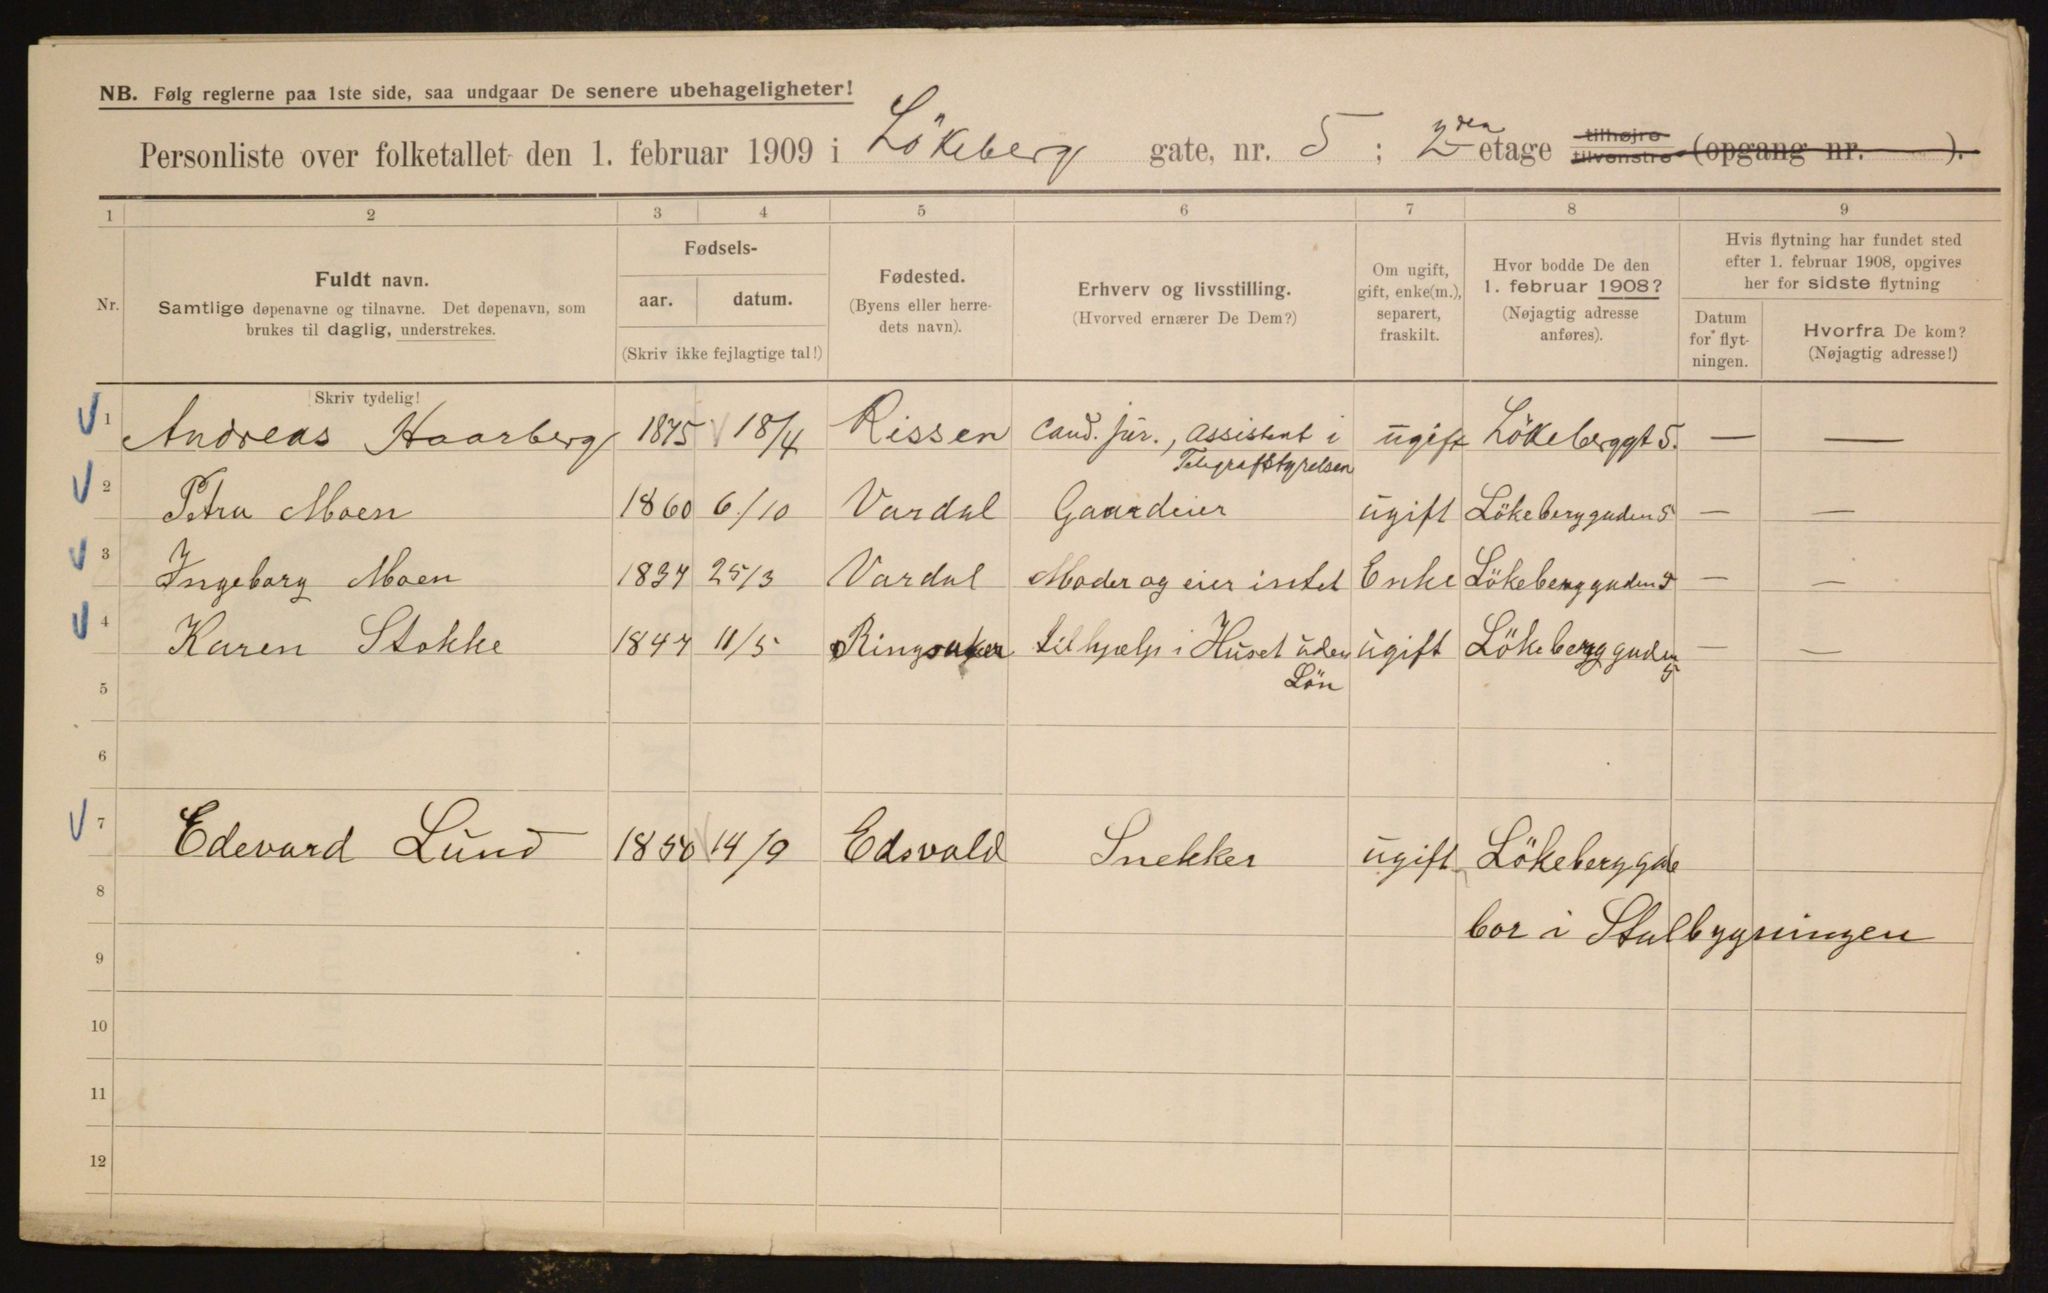 NB. Følg reglerne paa 1ste side, saa undgaar De senere ubehageligheter!
Personliste over folketallet den 1. februar 1909 i Lökeberg gate, nr. 5 ; 2den etage tilhøjre tilvenstre (opgang nr. ).
1 2 3 4 5 6 7 8 9
Nr.
Fuldt navn.
Samtlige døpenavne og tilnavne. Det døpenavn, som
brukes til daglig, understrekes.
Fødsels-
aar. datum.
(Skriv ikke fejlagtige tal!)
Fødested.
(Byens eller herre-
dets navn).
Erhverv og livsstilling.
(Hvorved ernærer De Dem?)
Om ugift,
gift, enke(m.),
separert,
fraskilt.
Hvor bodde De den
1. februar 1908?
(Nøjagtig adresse
anføres).
Hvis flytning har fundet sted
efter 1. februar 1908, opgives
her for sidste flytning
Datum
for flyt-
ningen.
Hvorfra De kom?
(Nøjagtig adresse!)
Skriv tydelig!
1 Andreas Haarberg 1875 18/4 Rissen cand. jur., assistent i ugift Lökeberggt 5. — —
Telegrafstyrelsen
2 Petra Moen 1860 6/10 Vardal Gaardeier ugift Lökeberggaden 5 — —
3 Ingeborg Moen 1837 25/3 Vardal Moder og eier intet Enke Lökeberggaden 5 — —
4 Karen Stokke 1847 11/5 Ringsaker til hjælp i Huset uden ugift Lökeberggaden — —
Lön 5
5
6
7 Edevard Lund 1850 14/9 Edsvold Snekker ugift Lökeberggade
8
bor i Stalbygningen
9
10
11
12